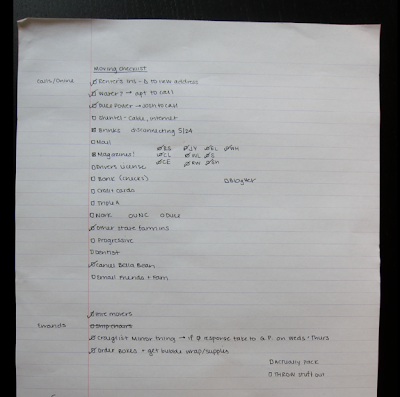 Moving Checklist
Calls/Online
Renter's Ins - to new address
Water? → apt to call
Duke Power → Josh to call
Charter - Cable, internet
Brinks disconnecting 5/24
Mail
Magazines! RS JY EL AH
CL WL S
CE RW SH
Drivers License
Bank (checks) Blogger
Credit Cards
Triple A
Work UNC Duke
Other State Farm Ins
Progressive
Dentist
Email Friends + Fam
hire movers
Errands
Craigslist Mirror thing → if response take to on Weds/Thurs
Order Boxes + get bubble wrap/supplies
Actually pack
Throw stuff out